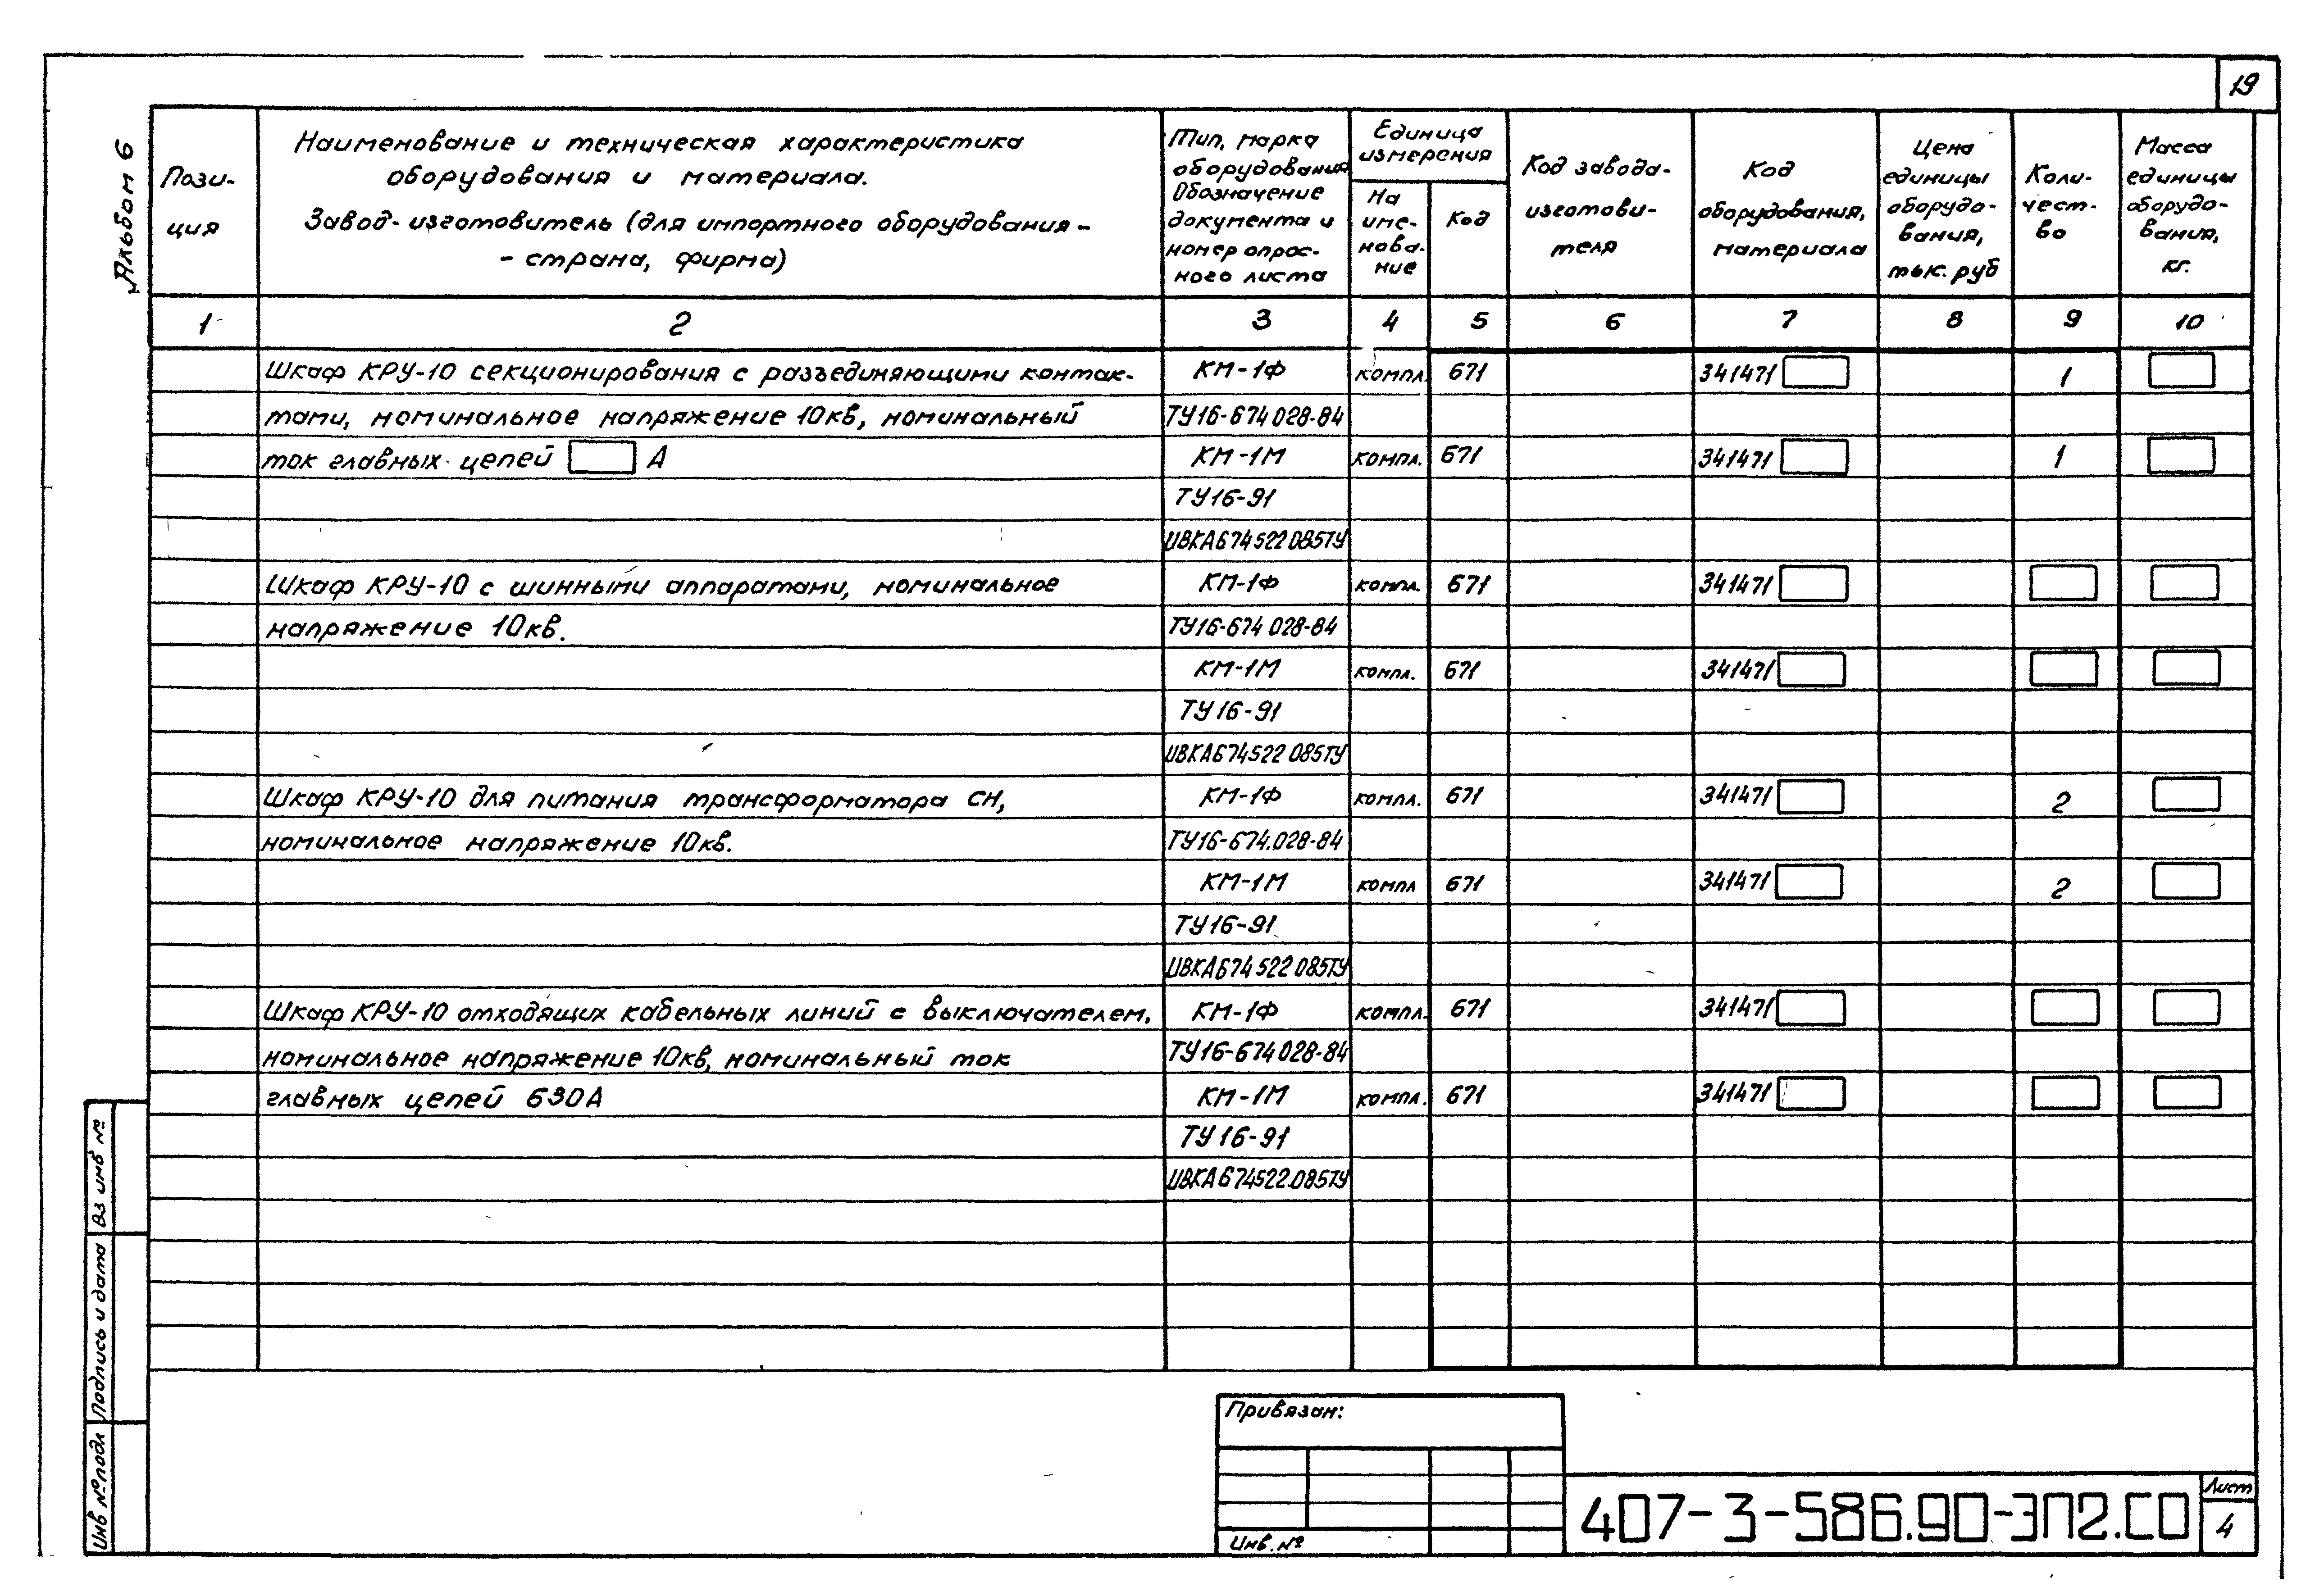 19
Альбом 6
Пози-
ция
Наименование и техническая характеристика
оборудования и материала.
Завод-изготовитель (для импортного оборудования -
- страна, фирма)
Тип, марка
оборудования
Обозначение
документа и
номер опрос-
ного листа
Единица
измерения
На
име-
нова-
ние
Код
Код завода-
изготови-
теля
Код
оборудования,
материала
Цена
единицы
оборудо-
вания,
тыс. руб
Коли-
чест-
во
Масса
единицы
оборудо-
вания,
кг.
1 2 3 4 5 6 7 8 9 10
Шкаф КРУ-10 секционирования с разъединяющими контак- КМ-1Ф компл. 671 341471 1
тами, номинальное напряжение 10кв, номинальный ТУ16-674 028-84
ток главных цепей А КМ-1М компл. 671 341471 1
ТУ16-91
ИВКА674522 085ТУ
Шкаф КРУ-10 с шинными аппаратами, номинальное КМ-1Ф компл. 671 341471
напряжение 10кв. ТУ16-674 028-84
КМ-1М компл. 671 341471
ТУ16-91
ИВКА674522 085ТУ
Шкаф КРУ-10 для питания трансформатора СН, КМ-1Ф компл. 671 341471 2
номинальное напряжение 10кв. ТУ16-674.028-84
КМ-1М компл 671 341471 2
ТУ16-91
ИВКА674 522 085ТУ
Шкаф КРУ-10 отходящих кабельных линий с выключателем, КМ-1Ф компл. 671 341471
номинальное напряжение 10кв, номинальный ток ТУ16-674028-84
главных цепей 630А КМ-1М компл. 671 341471
ТУ16-91
ИВКА674522.085ТУ
Вз инв №
Подпись и дата
Инв №подл
Привязан:
Инв. №
407-3-586.90-ЭП2.СО
Лист
4